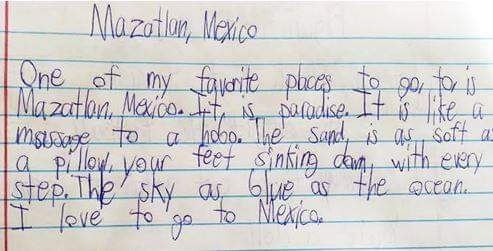 Mazatlan, Mexico
One of my favorite places to go, to, is
Mazatlan, Mexico. It is paradise. It is like a
massage to a hobo. The sand, is as soft as
a pillow, your feet sinking down, with every
step. The sky as blue as the ocean.
I love to go to Mexico.